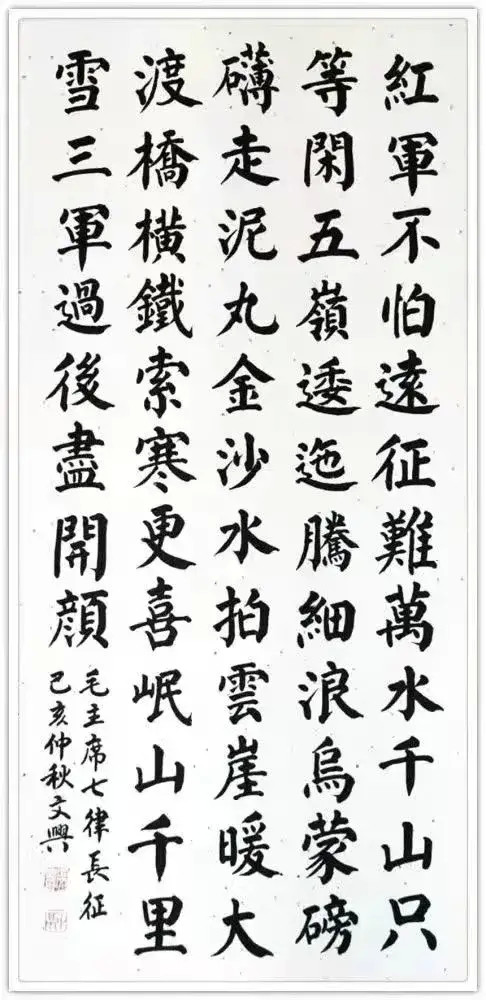 紅軍不怕遠征難萬水千山只
等閑五嶺逶迤騰細浪烏蒙磅
礴走泥丸金沙水拍雲崖暖大
渡橋橫鐵索寒更喜岷山千里
雪三軍過後盡開顔
毛主席七律長征
己亥仲秋文興